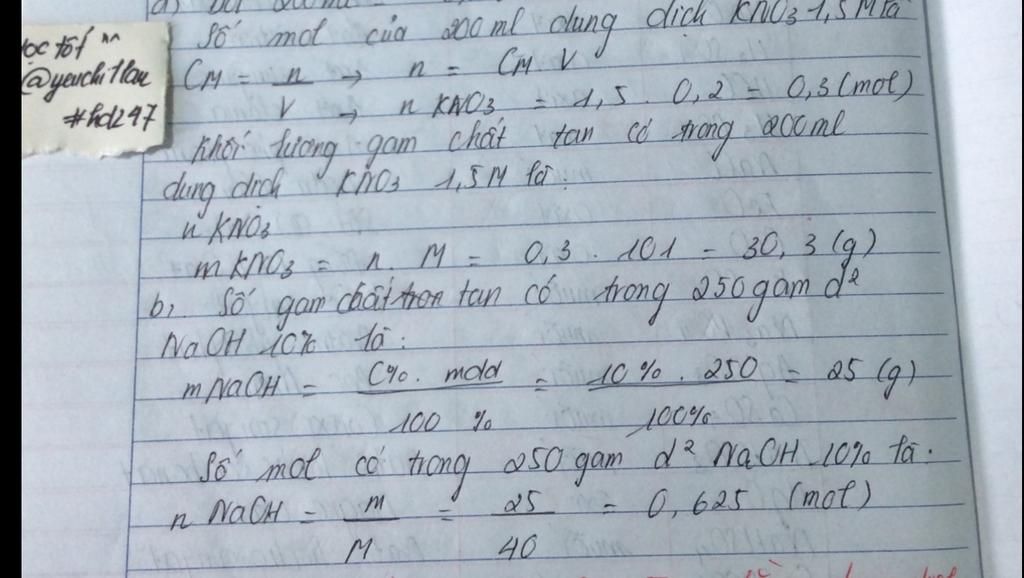 a)
Số mol của 200ml dung dịch KNO3 1,5M là
ọc tốt ^^
@yeuchi1lau
#hd247
CM = n/V → n = CM.V
→ nKNO3 = 1,5 . 0,2 = 0,3 (mol)
Khối lượng gam chất tan có trong 200ml
dung dịch KNO3 1,5M là:
nKNO3
mKNO3 = n. M = 0,3 . 101 = 30,3 (g)
b, Số gam chất tan có trong 250 gam d²
NaOH 10% là:
mNaOH = C%. mdd / 100 % = 10 % . 250 / 100% = 25 (g)
Số mol có trong 250 gam d² NaOH 10% là.
n NaOH = m/M = 25/40 = 0,625 (mol)